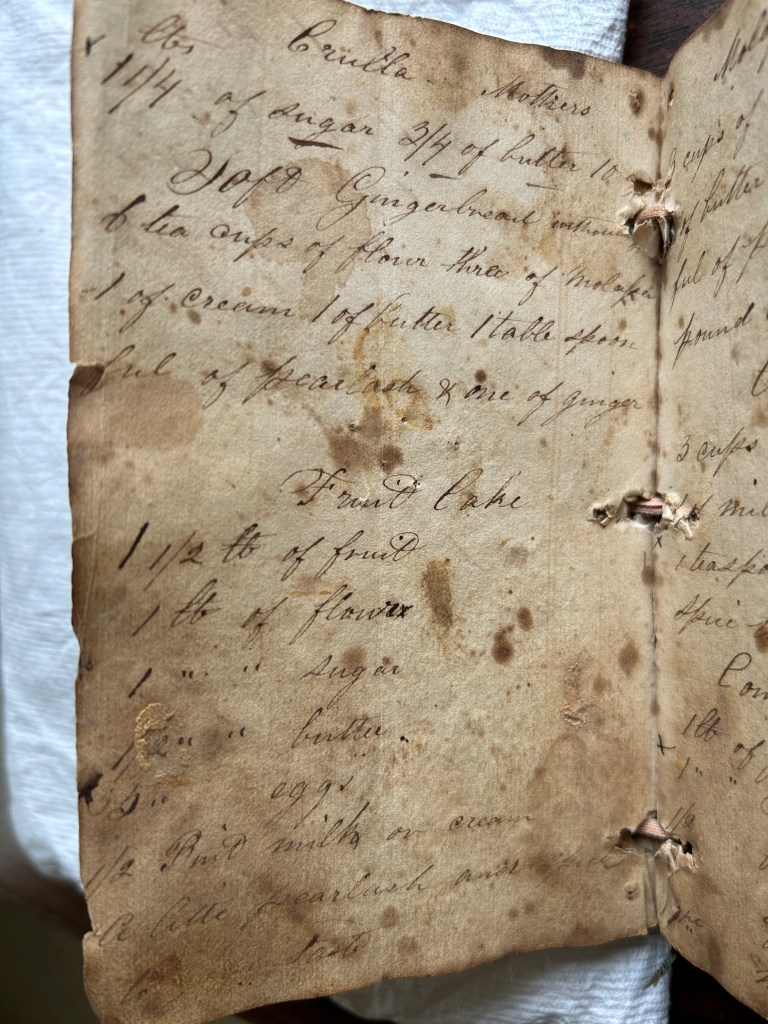 lbs Crulla - Mothers
1 1/4 of sugar 3/4 of butter 10
Soft Gingerbread without
6 tea cups of flour three of Molasses
1 of cream 1 of butter 1 table spoon
ful of pearlash & one of ginger
Fruit Cake
1 1/2 lb of fruit
1 lb of flower
1 " " sugar
1 " " butter.
" eggs
1/2 Pint milk or cream
a little pearlash and spice
taste
3 cups of
of butter
ful of
pound
3 cups
1 lb of
1 " "
1/2